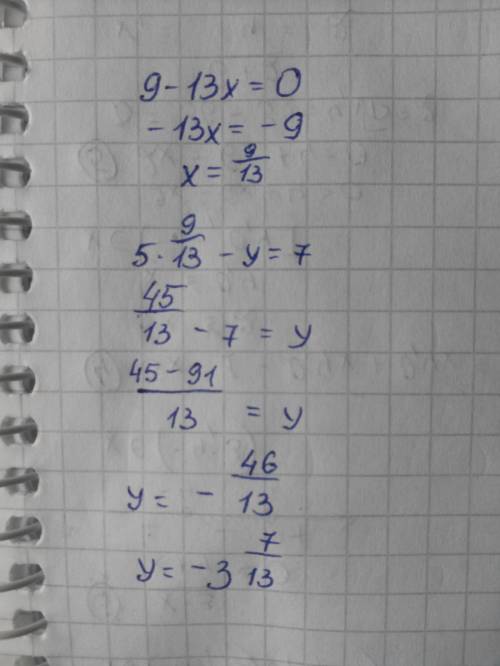 9 - 13x = 0
- 13x = - 9
x = 9/13
5 · 9/13 - y = 7
45/13 - 7 = y
(45 - 91)/13 = y
y = - 46/13
y = - 3 7/13